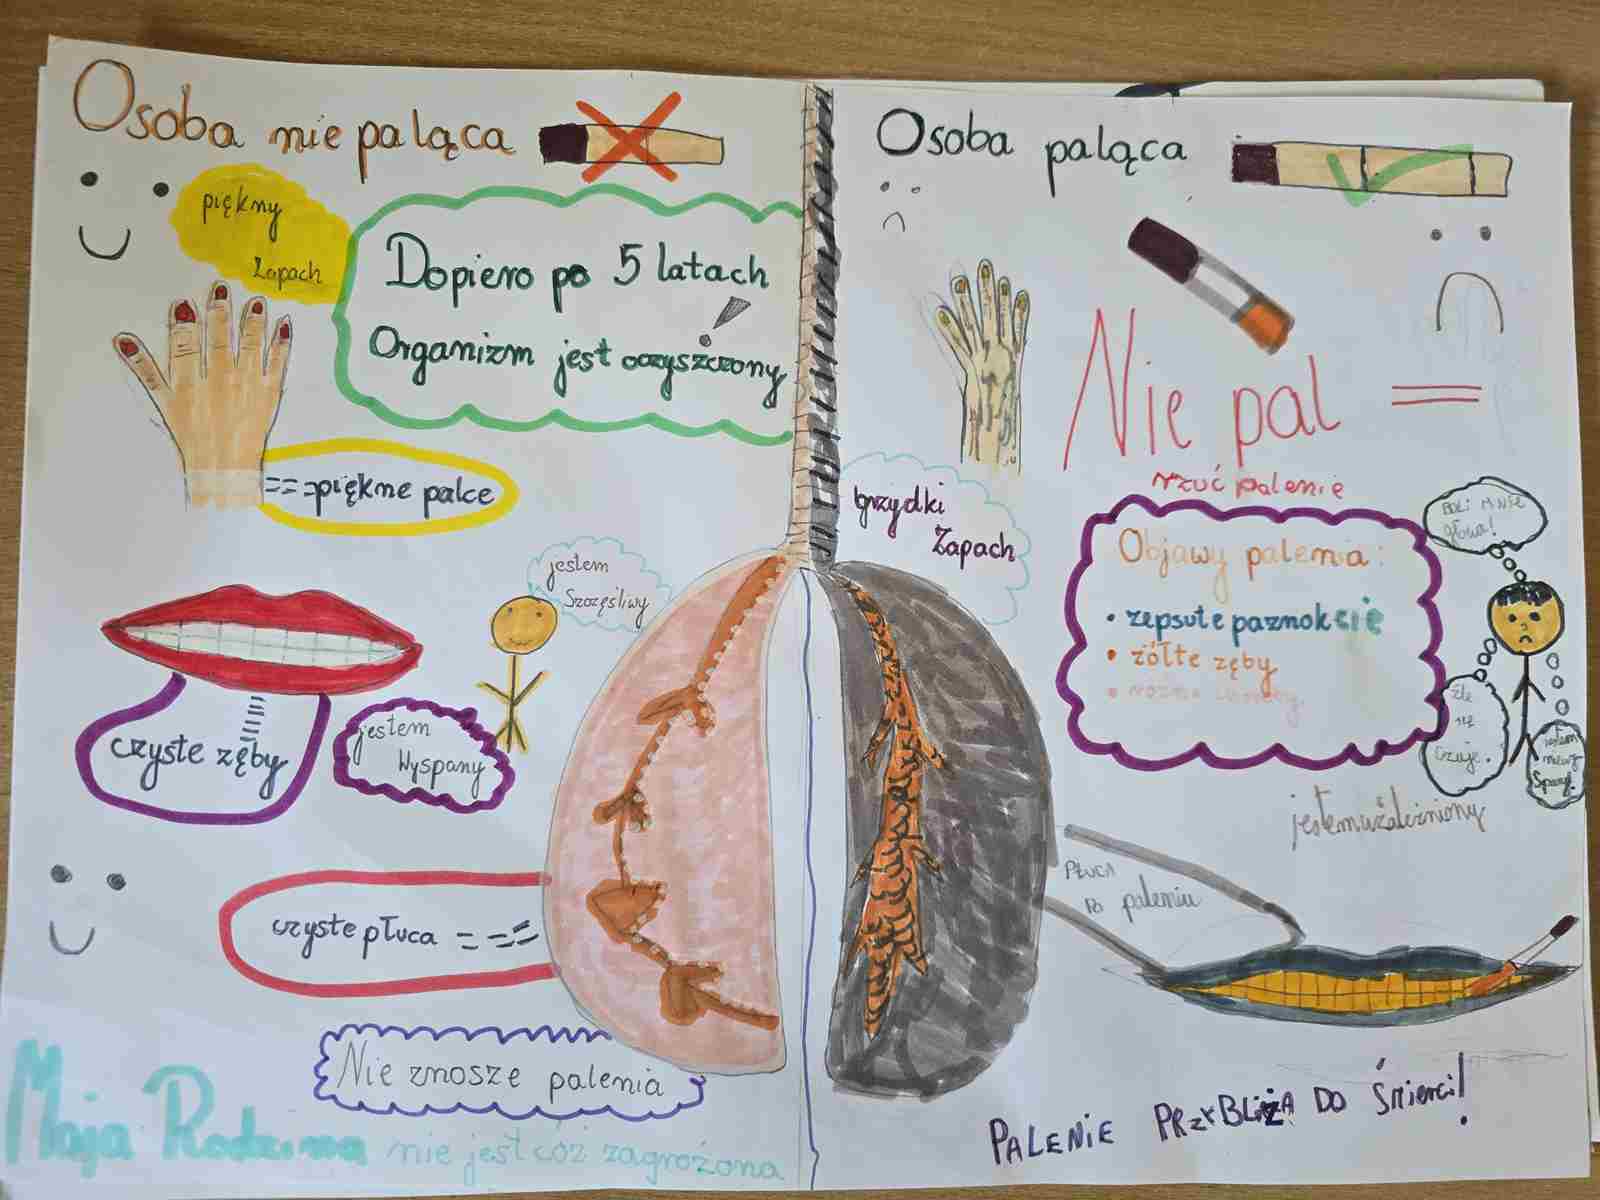 Osoba nie paląca
piękny
zapach
Dopiero po 5 latach
Organizm jest oczyszczony!
piękne palce
jestem
Szczęśliwy
czyste zęby
jestem
Wyspany
czyste płuca
Nie znoszę palenia
Maja Rodzina nie jest cóż zagrożona
Osoba paląca
Nie pal
rzuć palenie
brzydki
Zapach
Objawy palenia:
• zepsute paznokcie
• żółte zęby
BOLI MNIE
głowa!
źle
się
czuje.
jestem
jestem uzależniony
PŁUCA
Po paleniu
PALENIE PRZYBLIŻA DO Śmierci!